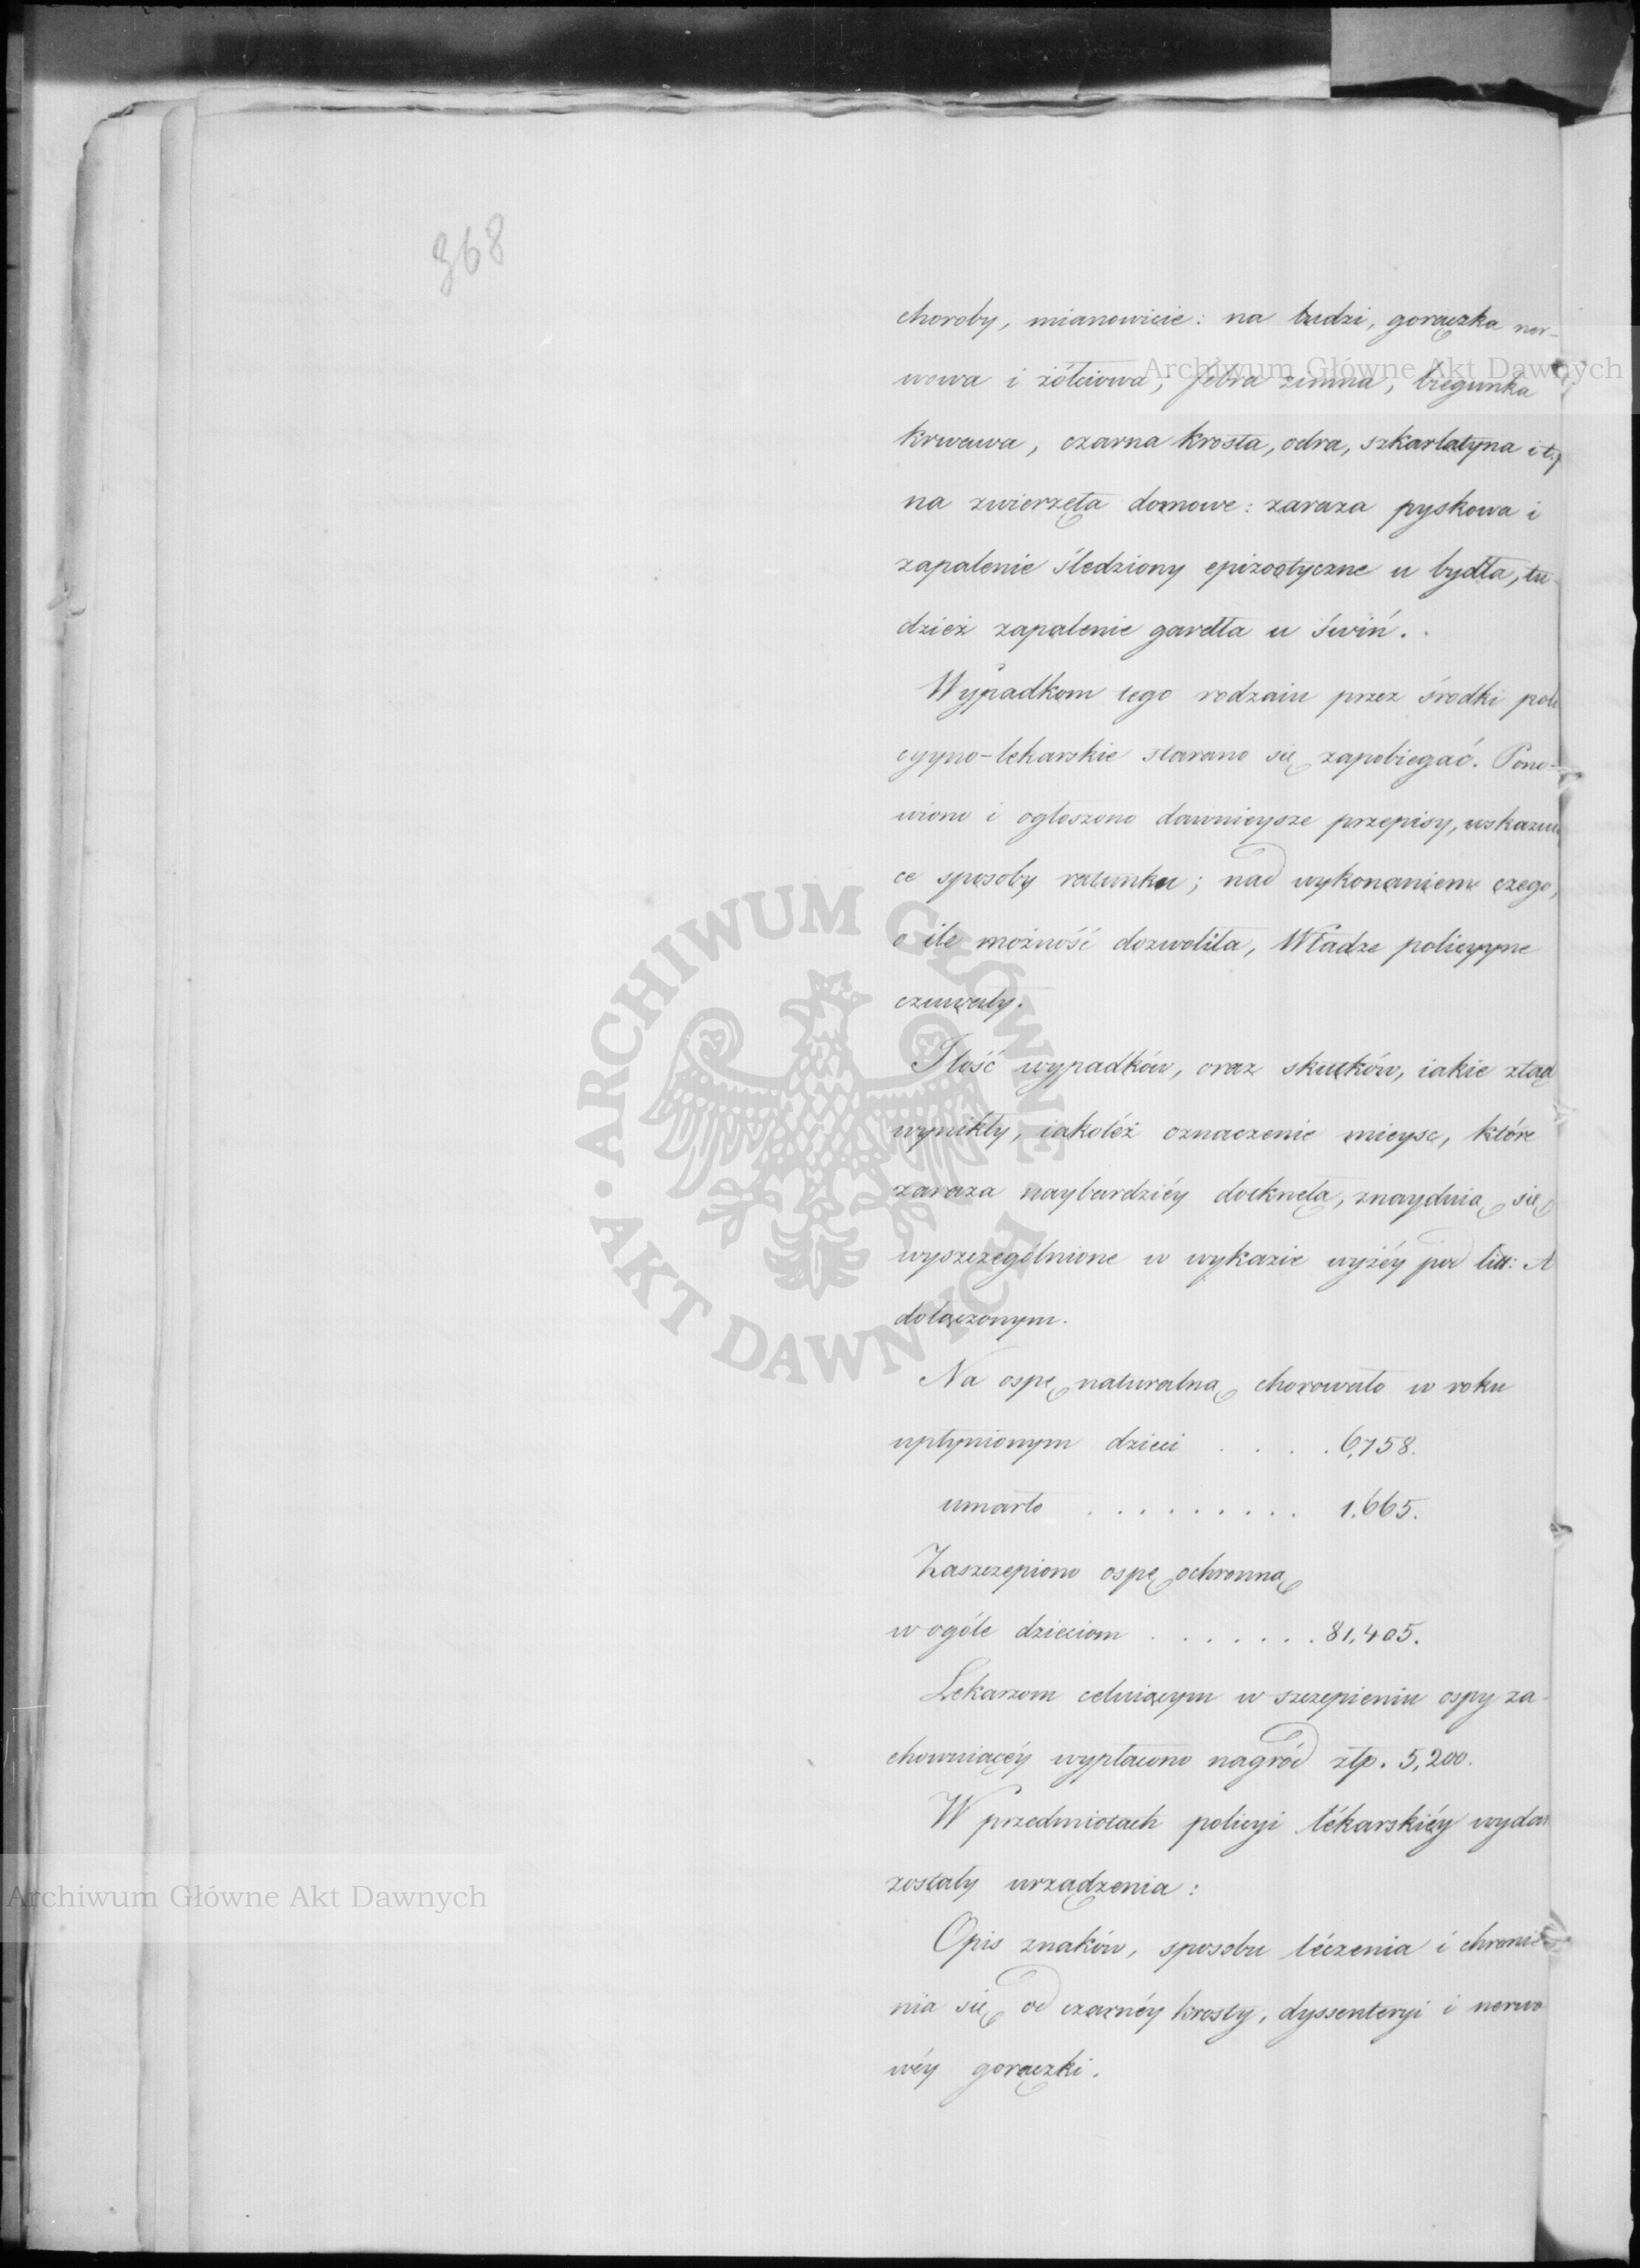 368
choroby, mianowicie: na ludzi, gorączka ner-
wowa i żółciowa, febra zimna, biegunka
krwawa, czarna krosta, odra, szkarlatyna i t.p
na zwierzęta domowe: zaraza pyskowa i
zapalenie śledziony epizootyczne u bydła, tu-
dzież zapalenie gardła u świń.
Wypadkom tego rodzaiu przez środki poli
cyyno-lekarskie starano się zapobiegać. Pono-
wiono i ogłoszono dawnieysze przepisy, wskazuią
ce sposoby ratunku; nad wykonaniem czego,
o ile możność dozwoliła, Władze policyyne
czuwały.
Ilość wypadków, oraz skutków, iakie ztąd
wynikły, iakoteż oznaczenie mieysc, które
zaraza naybardziéy dotknęła, znayduią się
wyszczególnione w wykazie wyżéy pod litt: A
dołączonym.
Na ospę naturalną chorowało w roku
upłynionym dzieci . . . . 6,758.
umarło . . . . . . . . . 1,665.
Zaszczepiono ospę ochronną
w ogóle dzieciom . . . . . . . 81,405.
Lekarzom celuiącym w szczepieniu ospy za-
chowuiącéy wypłacono nagród złp. 5,200.
W przedmiotach policyi lékarskiéy wydan
zostały urządzenia:
Opis znaków, sposobu léczenia i chronie
nia się od czarnéy krosty, dyssenteryi i nerwo
wéy gorączki.
Archiwum Główne Akt Dawnych
ARCHIWUM GŁÓWNE · AKT DAWNYCH ·
Archiwum Główne Akt Dawnych